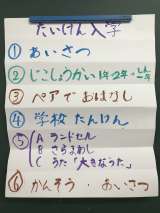 たいけん入学
① あいさつ
② じこしょうかい 1年2年・しん一年
③ ペアで おはなし
④ 学校 たんけん
⑤ A ランドセル
B さらまわし
C うた「大きなうた」
⑥ かんそう・あいさつ